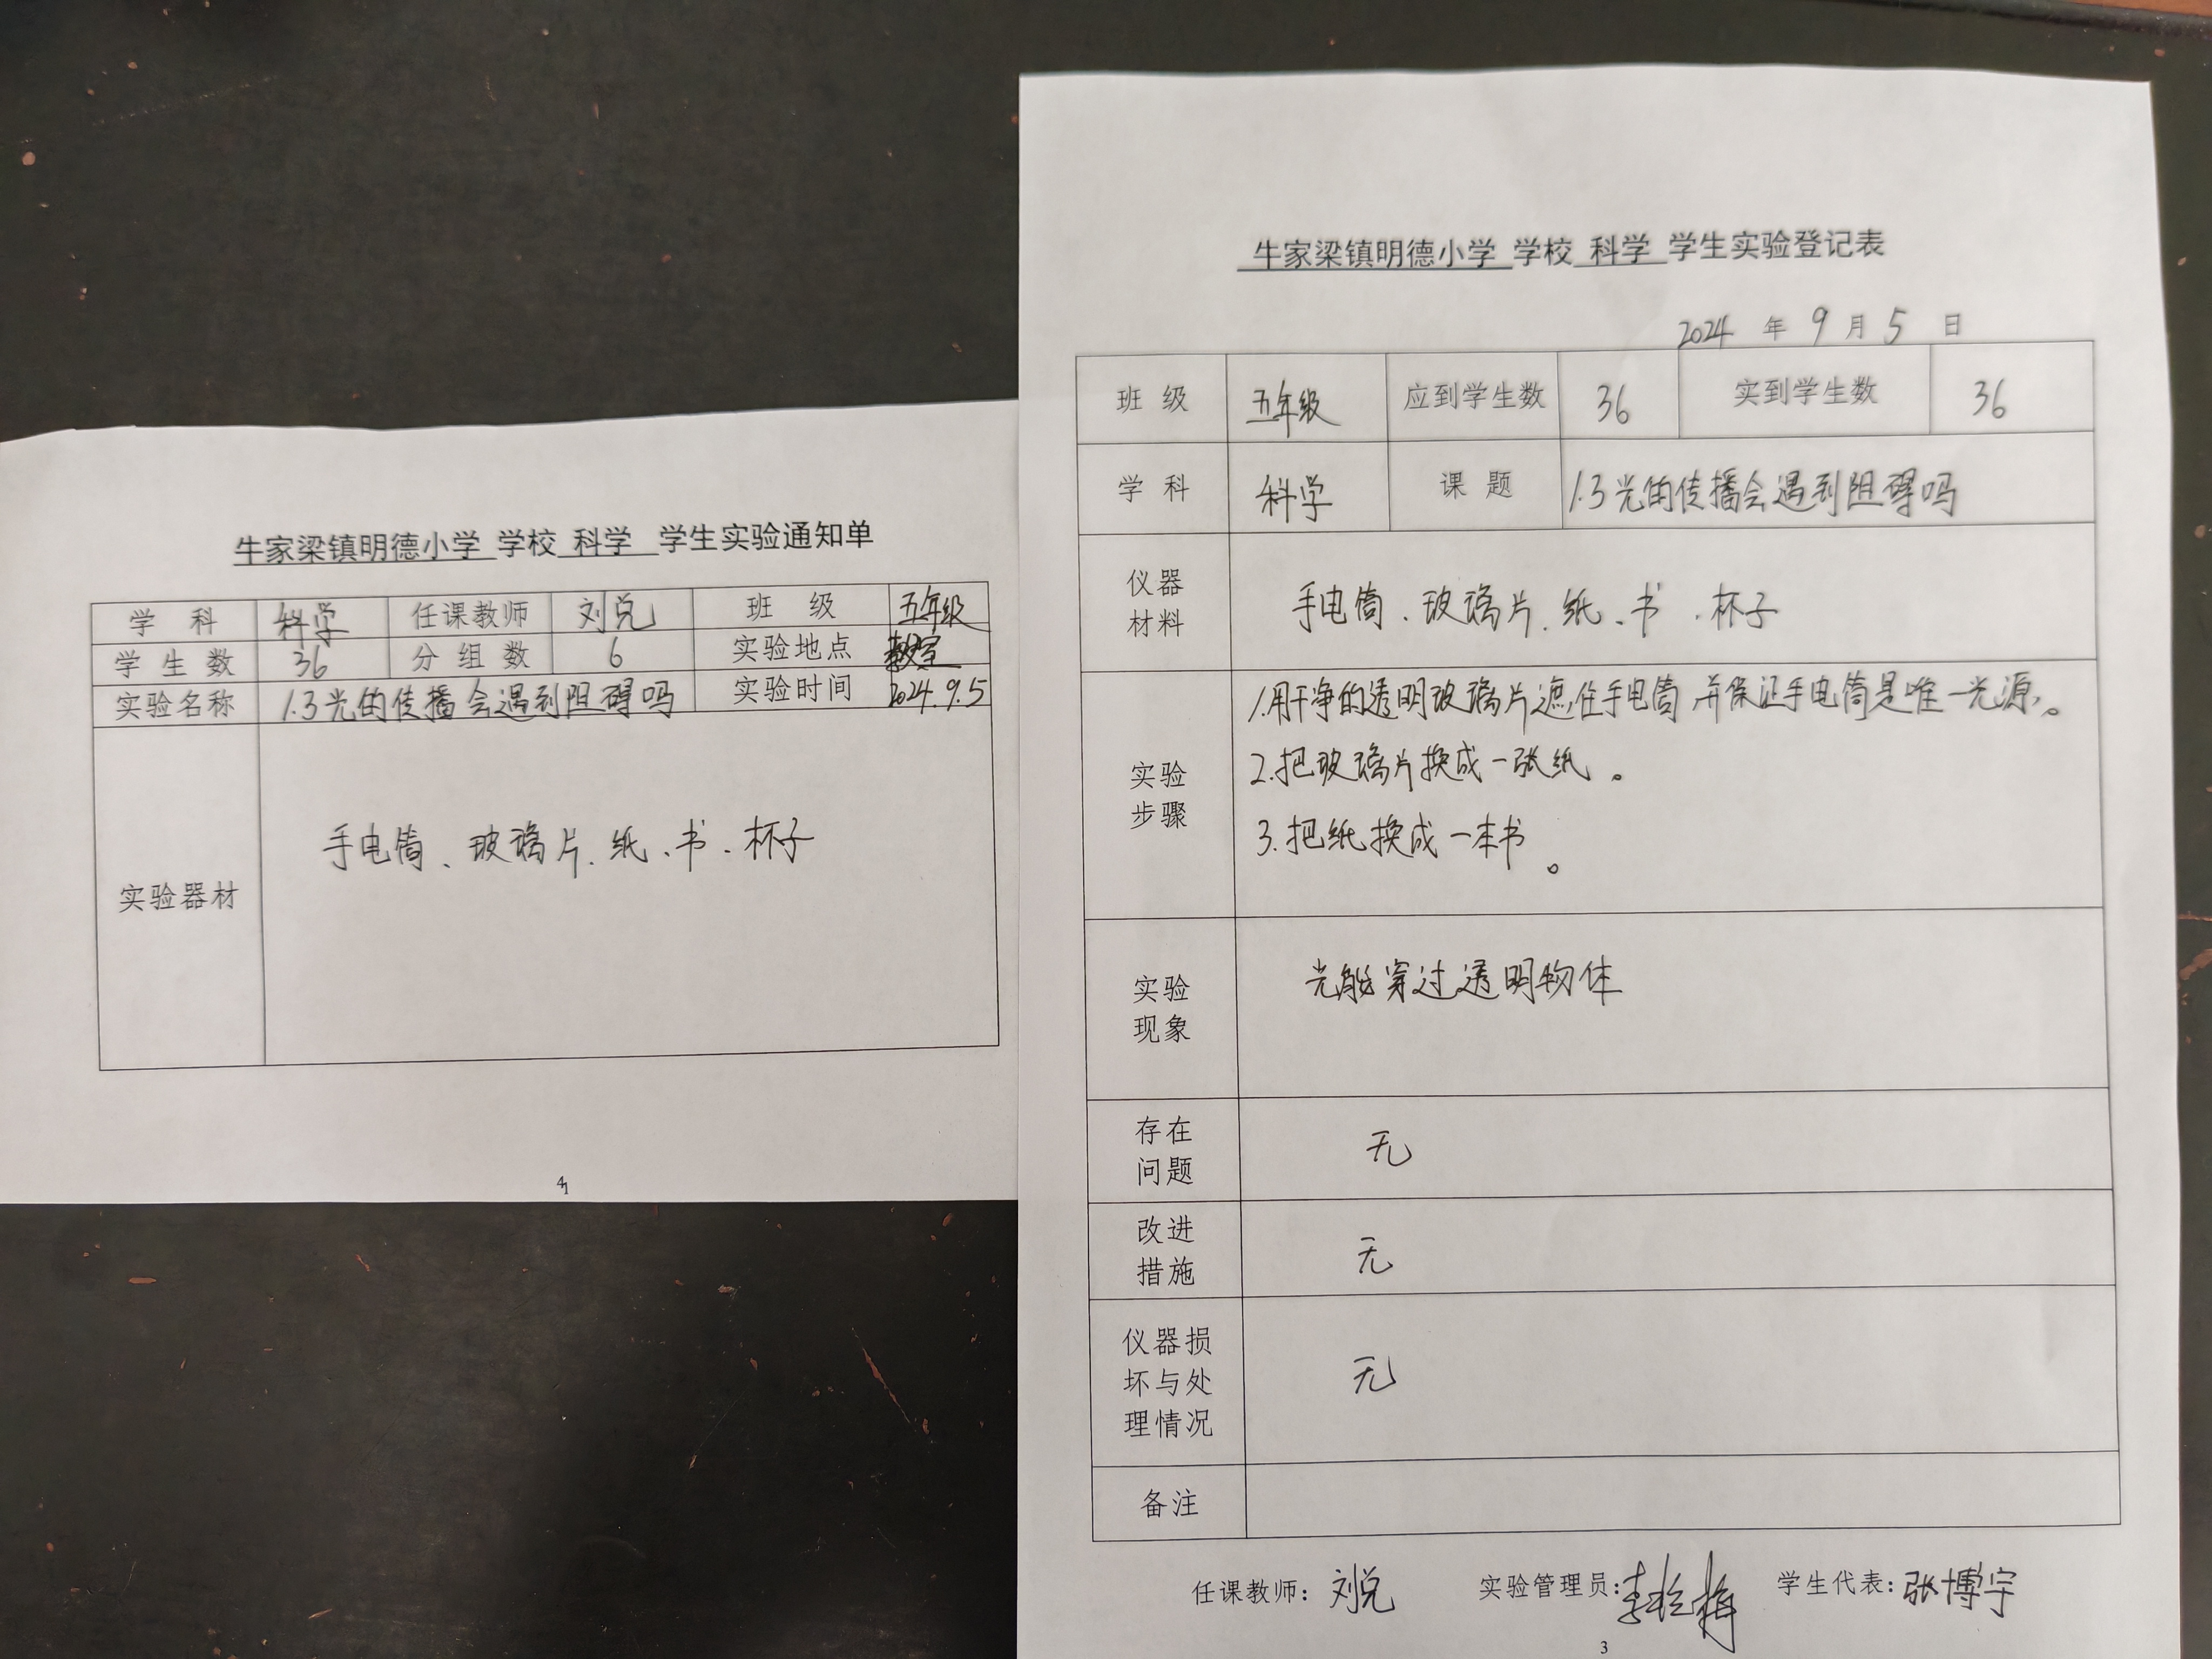 牛家梁镇明德小学 学校 科学 学生实验通知单
学 科 科学 任课教师 刘兑 班 级 五年级
学 生 数 36 分 组 数 6 实验地点 教室
实验名称 1.3光的传播会遇到阻碍吗 实验时间 2024.9.5
实验器材 手电筒、玻璃片、纸、书、杯子
牛家梁镇明德小学 学校 科学 学生实验登记表
2024 年 9 月 5 日
班 级 五年级 应到学生数 36 实到学生数 36
学 科 科学 课 题 1.3光的传播会遇到阻碍吗
仪器
材料
手电筒、玻璃片、纸、书、杯子
实验
步骤
1.用干净的透明玻璃片遮住手电筒,并保证手电筒是唯一光源。
2.把玻璃片换成一张纸。
3.把纸换成一本书。
实验
现象
光能穿过透明物体
存在
问题
无
改进
措施
无
仪器损
坏与处
理情况
无
备注
任课教师: 刘兑 实验管理员: 学生代表: 张博宇
3